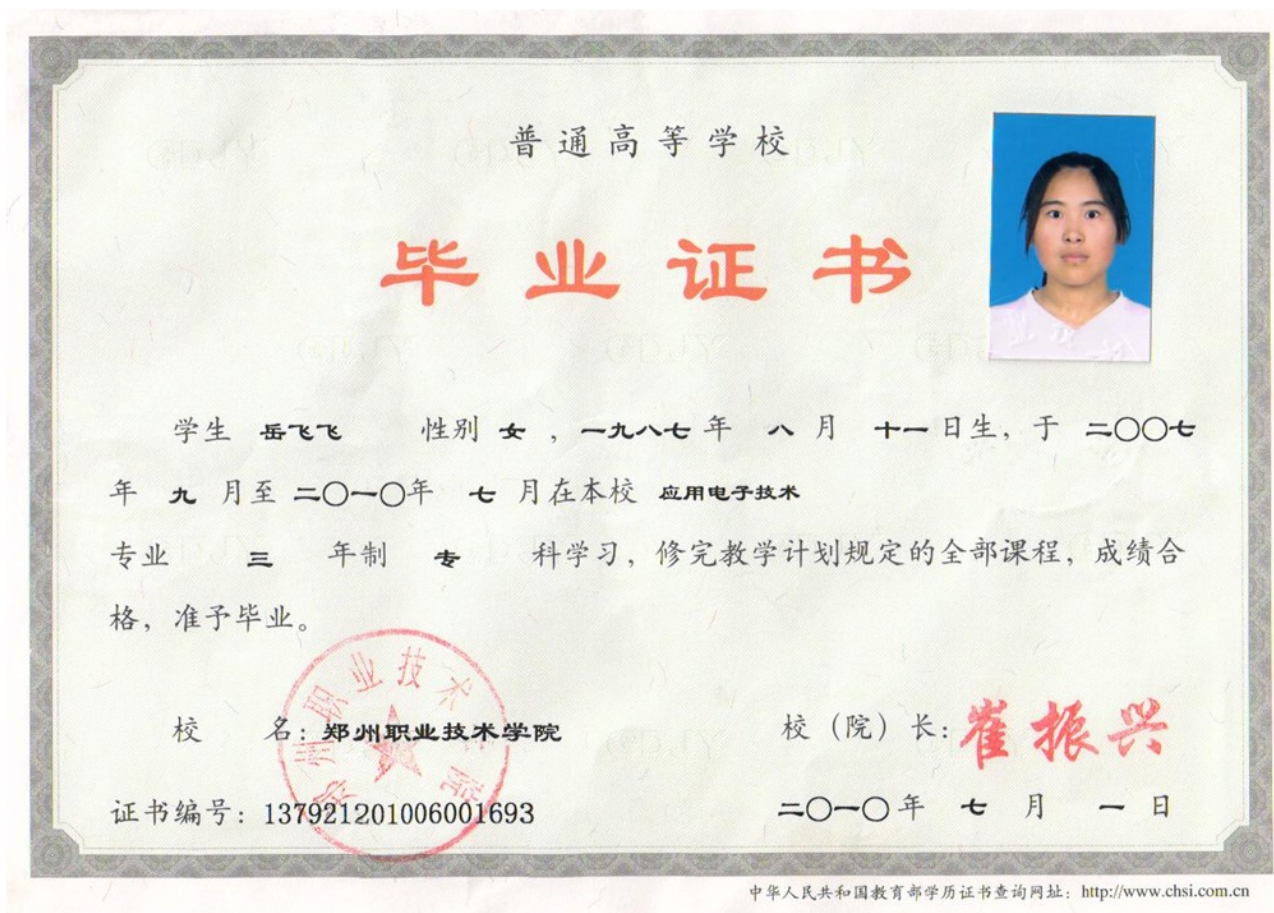 普通高等学校
毕业证书
学生 岳飞飞 性别 女 ，一九八七 年 八 月 十一 日生，于 二〇〇七
年 九 月至 二〇一〇年 七 月在本校 应用电子技术
专业 三 年制 专 科学习，修完教学计划规定的全部课程，成绩合
格，准予毕业。
郑州职业技术学院
校 名：郑州职业技术学院 校（院）长：崔振兴
证书编号：137921201006001693 二〇一〇 年 七 月 一 日
中华人民共和国教育部学历证书查询网址：http://www.chsi.com.cn